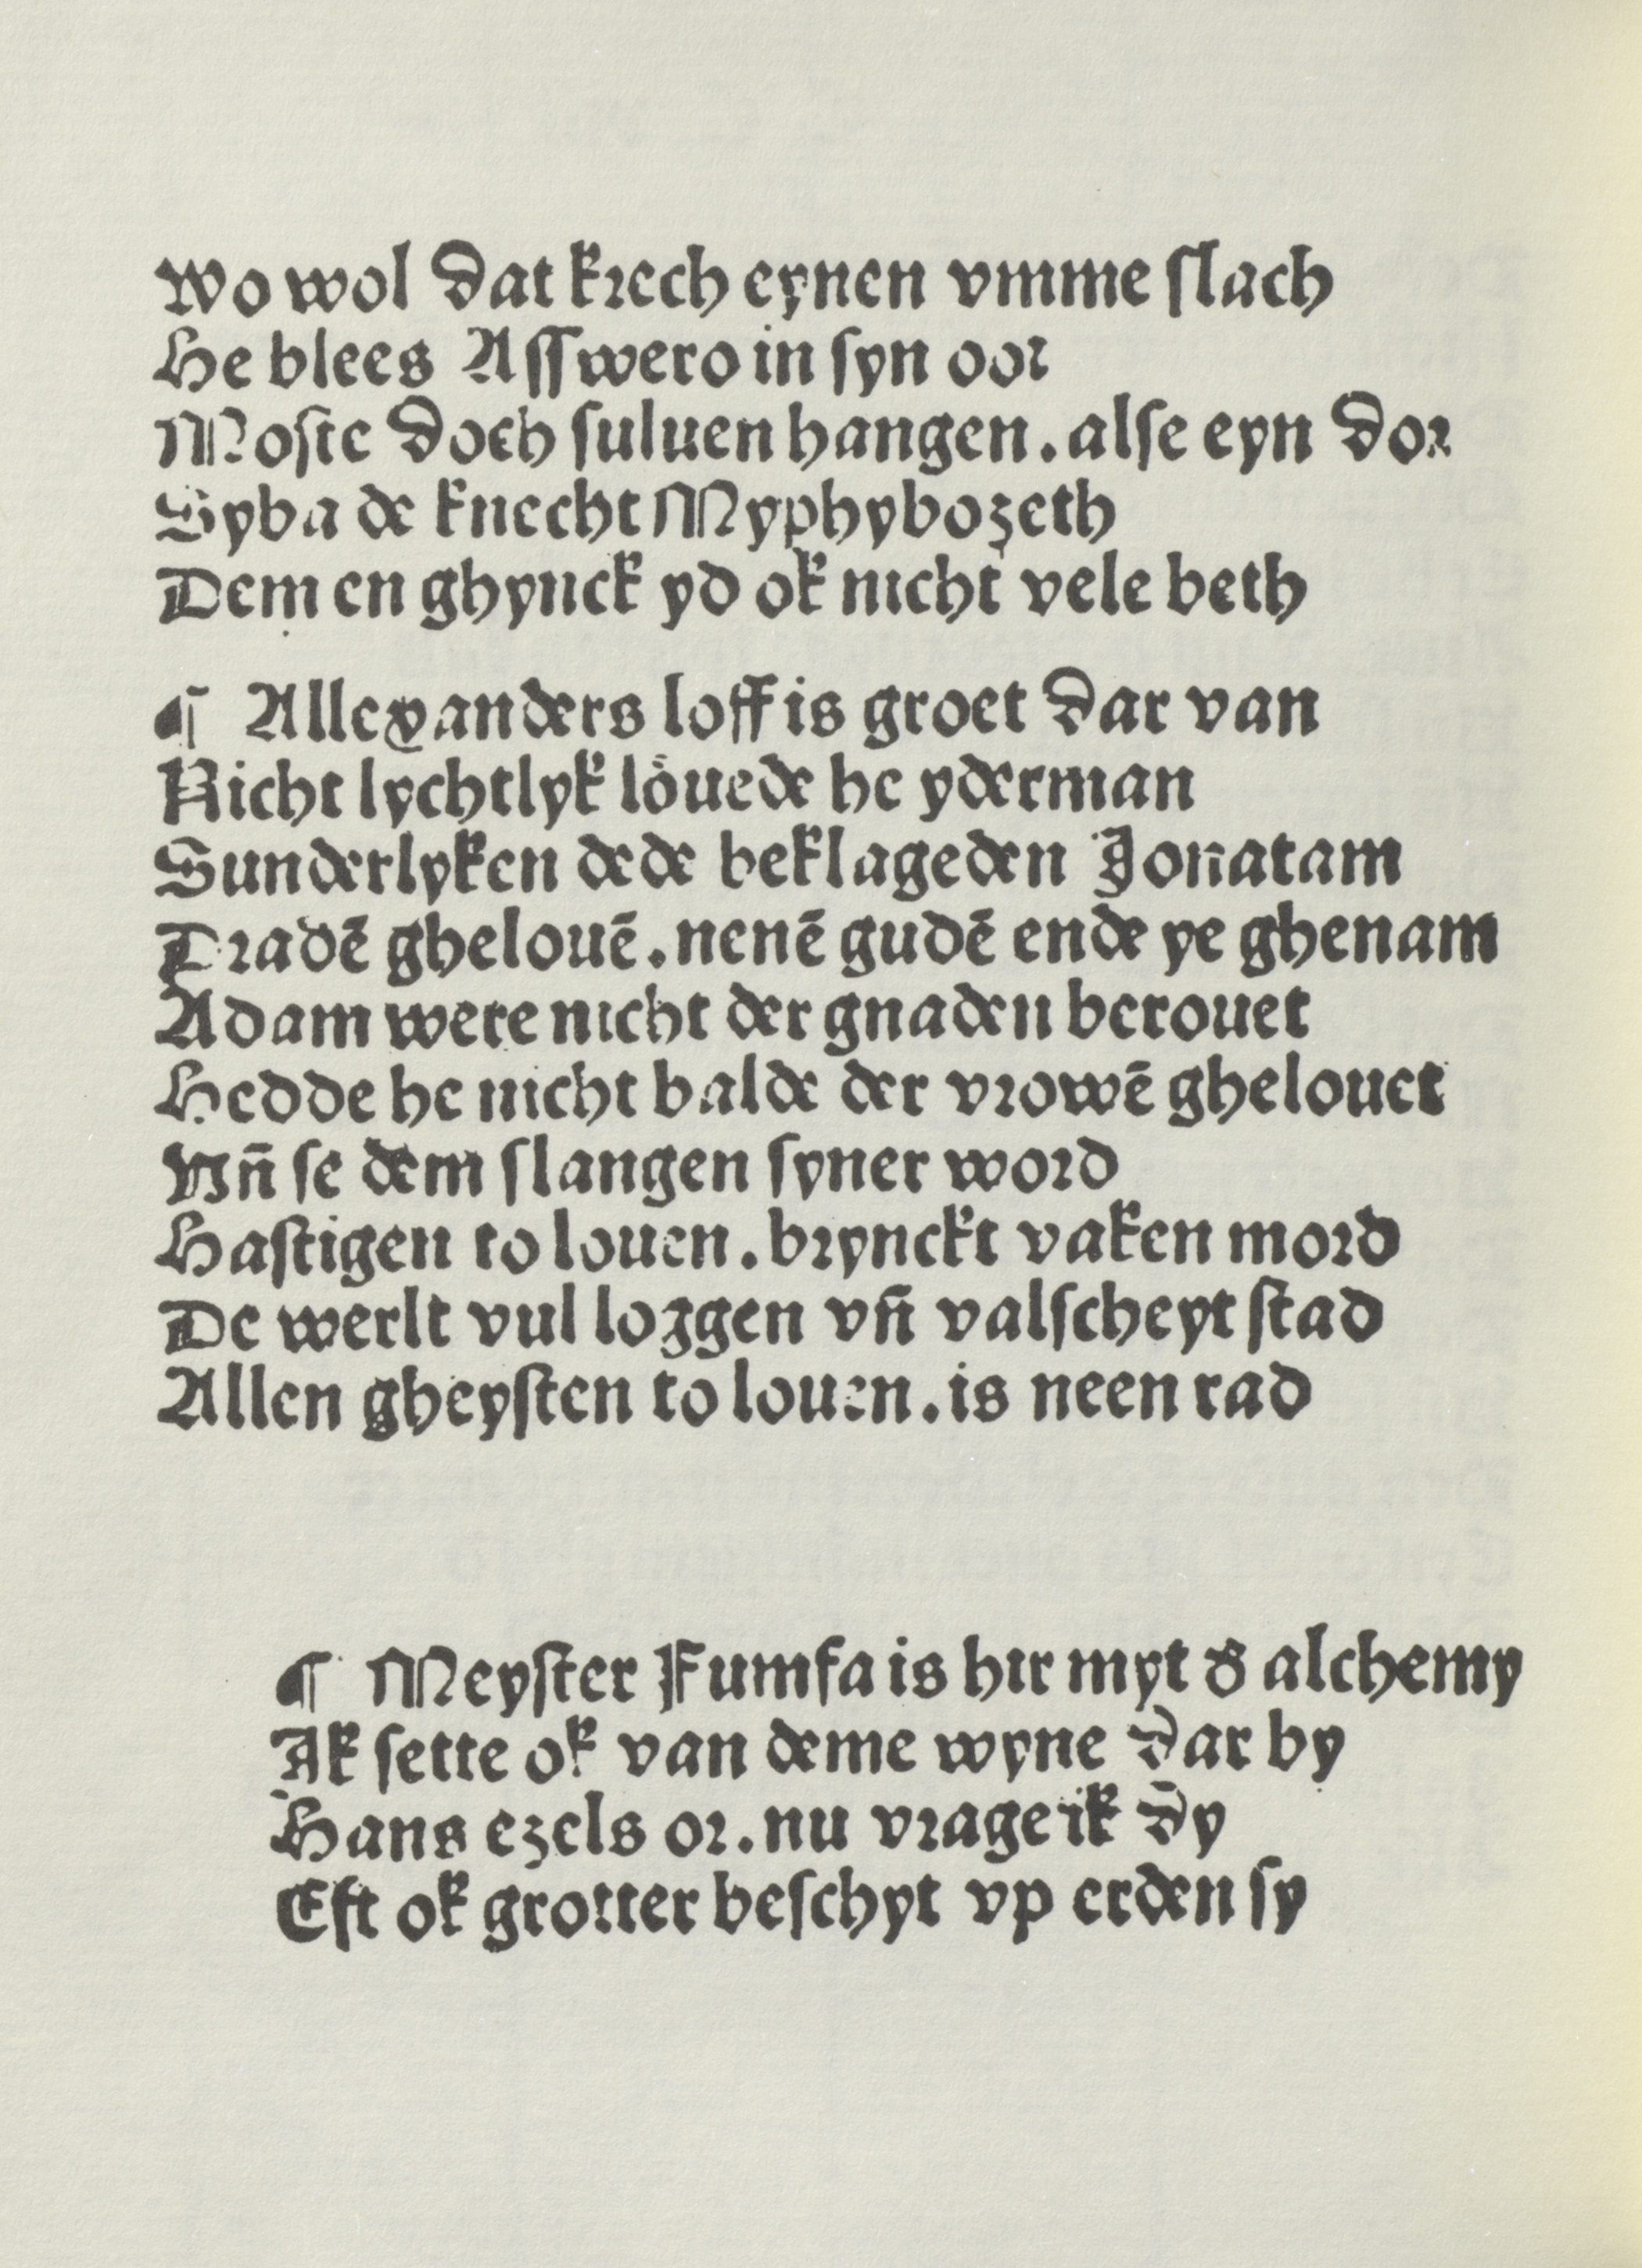 Wo wol dat krech eynen vmme ſlach
He blees Aſſwero in ſyn oor
Moſte doch ſuluen hangen. alſe eyn dor
Syba de knecht Myphybozeth
Dem en ghynck yd ok nicht vele beth
¶ Allexanders loff is groet dar van
Nicht lychtlyk loͤuede he yderman
Sunderlyken dede beklageden Jonatam
Dradē ghelouē. nenē gudē ende ye ghenam
Adam were nicht der gnaden berouet
Hedde he nicht balde der vrowē ghelouet
Vn̄ ſe dem ſlangen ſyner word
Haſtigen to louen. brynckt vaken mord
De werlt vul lozgen vn̄ valſcheyt ſtad
Allen gheyſten to louen. is neen rad
¶ Meyſter Fumfa is hir myt d' alchemy
Ik ſette ok van deme wyne dar by
Hans ezels or. nu vrage ik dy
Eft ok grotter beſchyt vp erden ſy